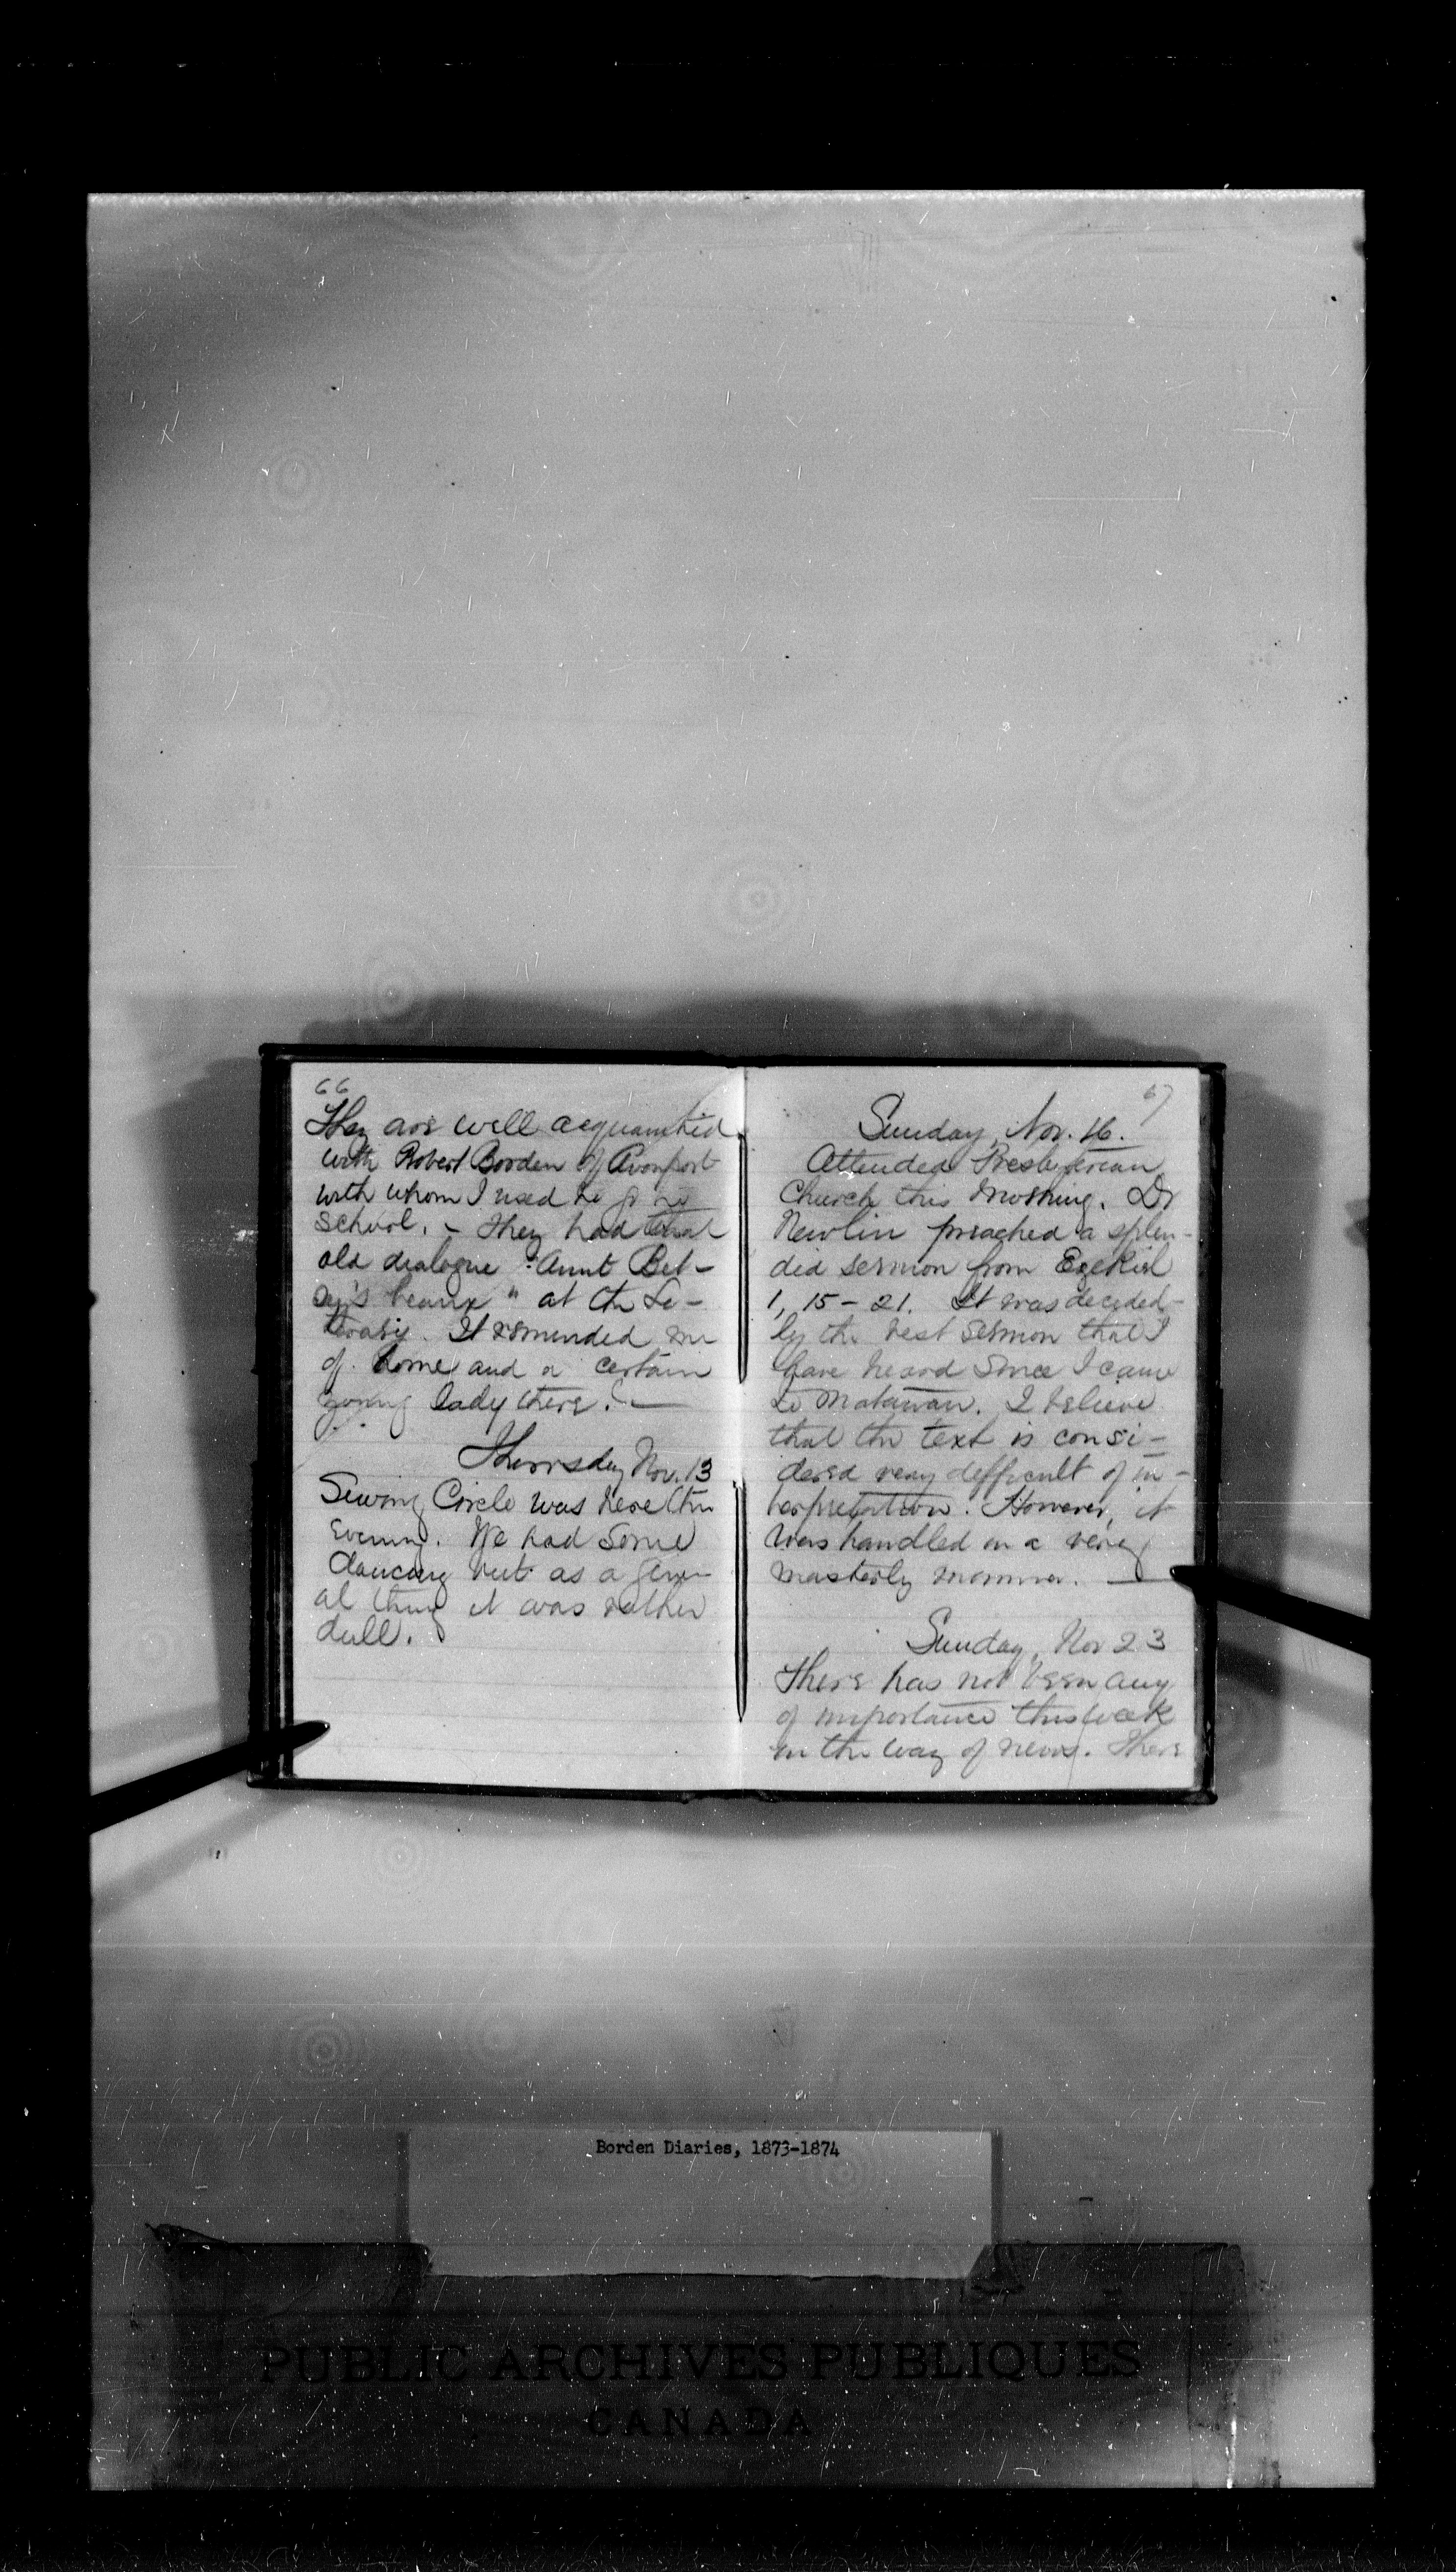 66
They are well acquainted
with Robert Borden of Avonport
with whom I used to go to
school. - They had that
old dialogue "Aunt Bet-
sy's beaux" at the Li-
terary. It reminded me
of home and a certain
young lady there. -
Thursday Nov. 13
Sewing Circle was here this
evening. We had some
dancing but as a gener-
al thing it was rather
dull.
67
Sunday, Nov. 16.
Attended Presbyterian
Church this morning. Dr
Newlin preached a splen-
did sermon from Ezekiel
1, 15-21. It was decided-
ly the best sermon that I
have heard since I came
to Matawan. I believe
that the text is consi-
dered very difficult of in-
terpretation. However, it
was handled in a very
masterly manner. -
Sunday, Nov 23
There has not been any
of importance this week
in the way of news. There
Borden Diaries, 1873-1874
PUBLIC ARCHIVES PUBLIQUES
CANADA